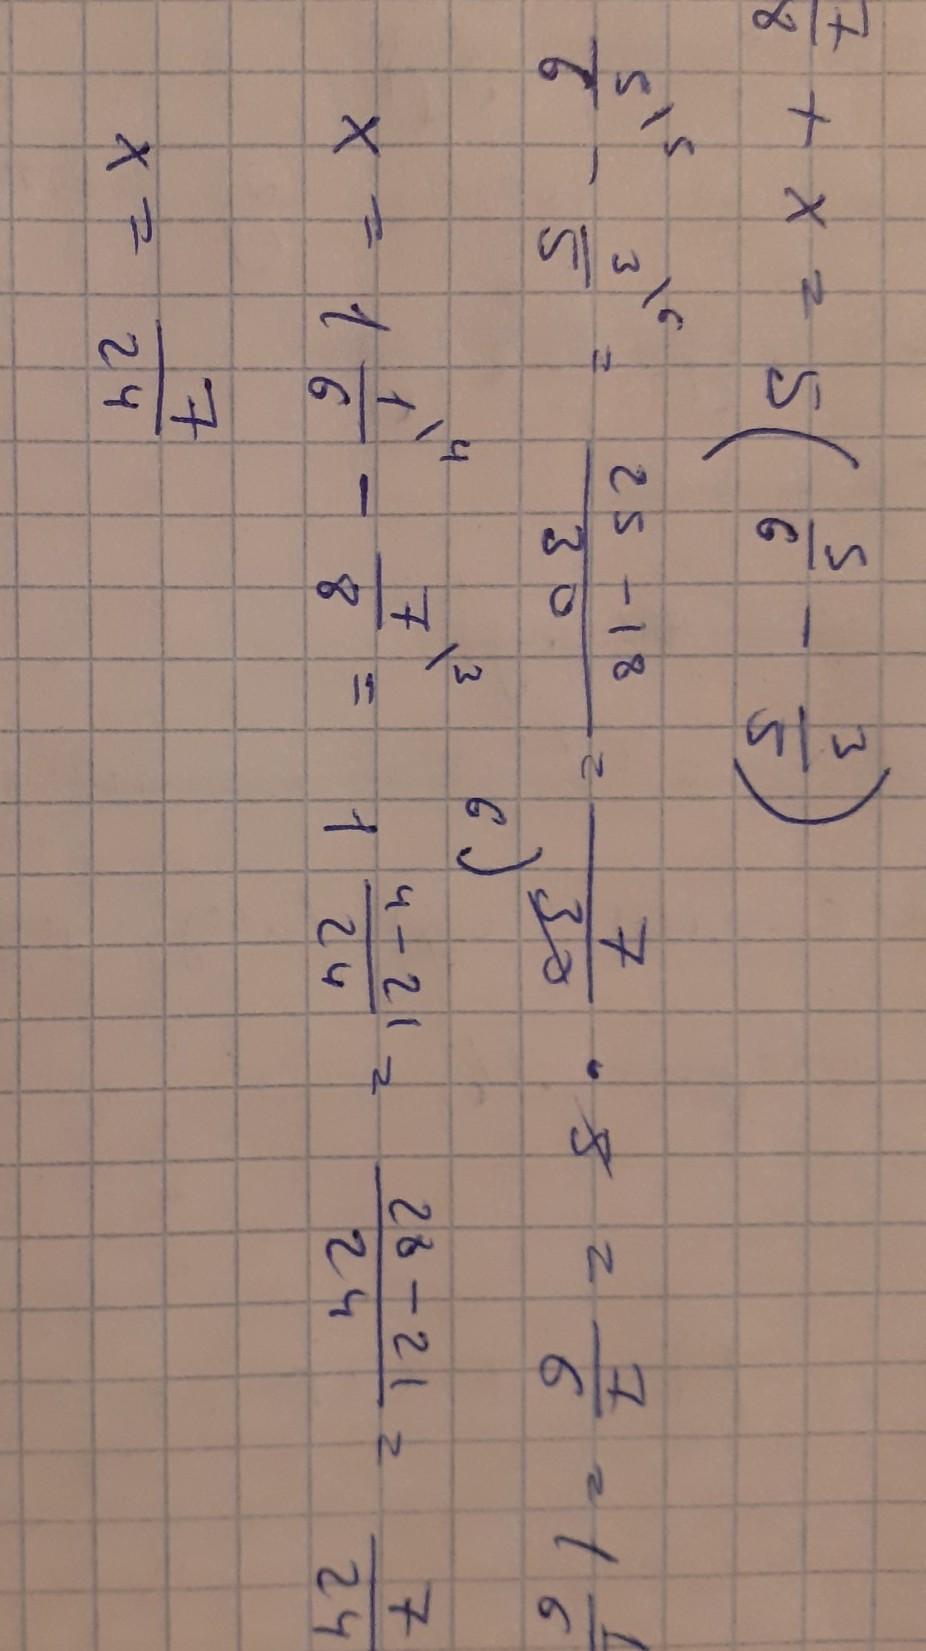 7/8 + x = 5(5/6 - 3/5)
5\5/6 - 3\6/5 = 25-18/30 = 7/30 6) · 5 = 7/6 = 1 1/6
x = 1 1\4/6 - 7\3/8 = 1 4-21/24 = 28-21/24 = 7/24
x = 7/24